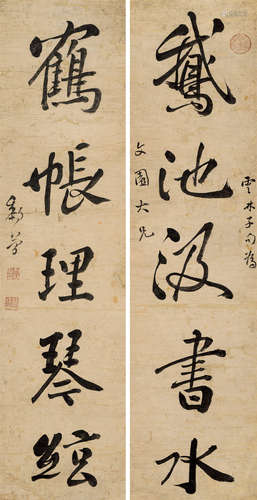 雲林子句為
鵝池汲書水
文園大兄
鶴帳理琴絃